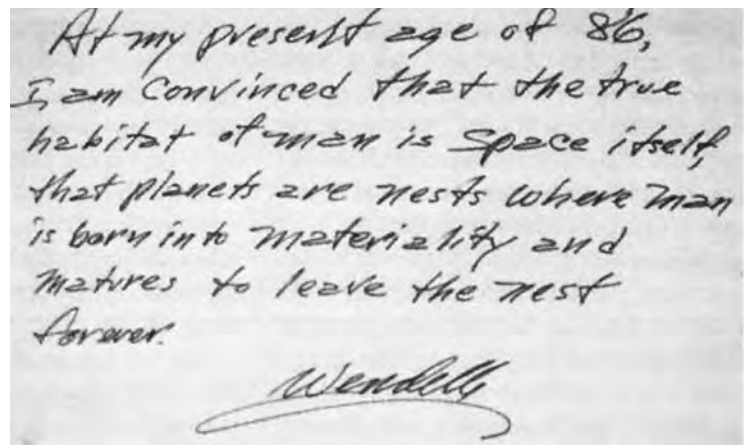 At my present age of 86,
I am convinced that the true
habitat of man is space itself,
that planets are nests where man
is born into materiality and
matures to leave the nest
forever.
Wendelle